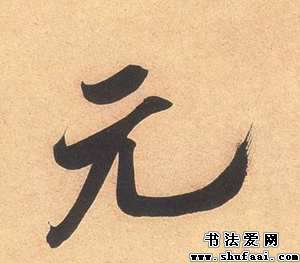 元
书法爱网
www.shufaai.com